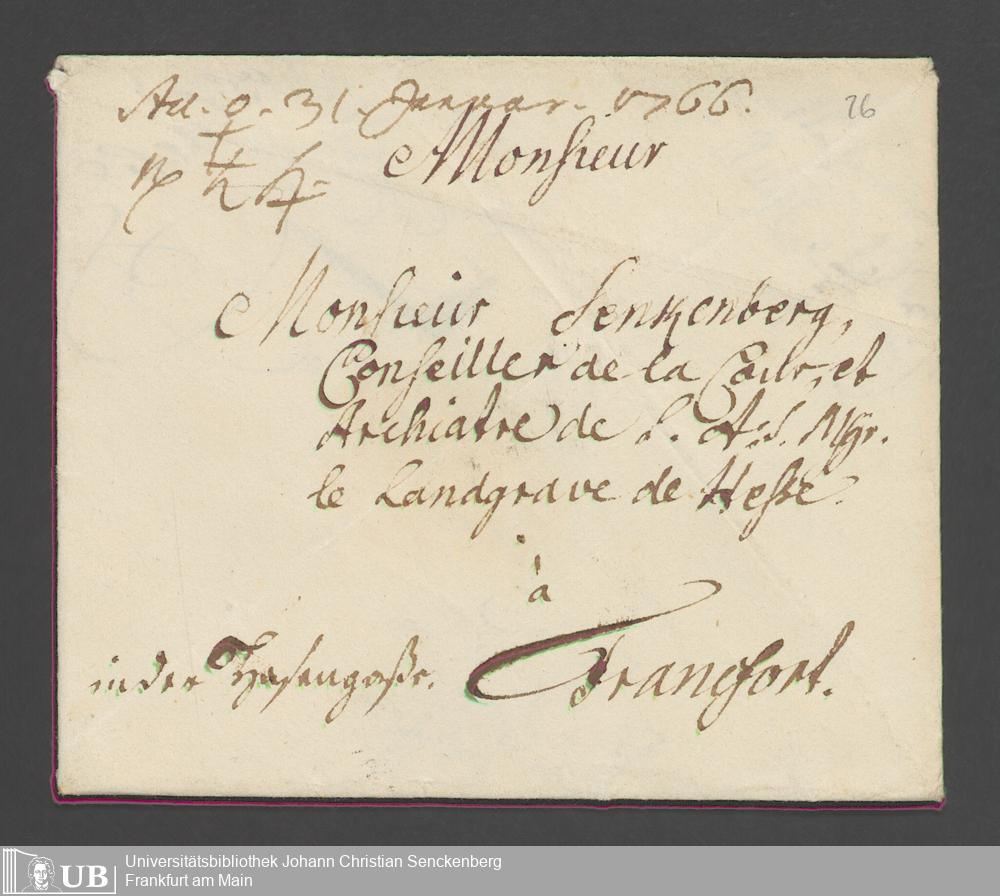 Acc. ♀. 31. Januar. 1766.
26
Monsieur
Monsieur Senkenberg,
Conseiller de la Cour, et
Archiatre de S. A. S. Mgr.
le Landgrave de Hesse.
à
in der Hasengaße. Francfort.
UB Universitätsbibliothek Johann Christian Senckenberg
Frankfurt am Main